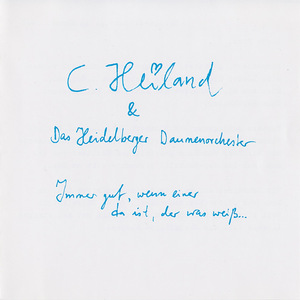 C. Heiland
&
Das Heidelberger Daumenorchester
Immer gut, wenn einer
da ist, der was weiß...